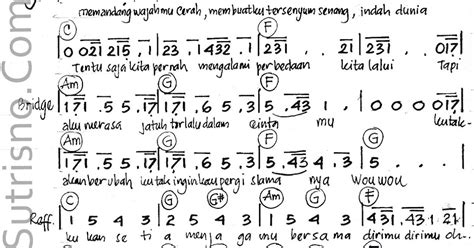 memandang wajahmu cerah, membuatku tersenyum senang, indah dunia
C F
0 021 215 , 1 | 23 . 1432 . 1 | 231 . . 231 | . . . 017 |
Tentu saja kita pernah mengalami perbedaan kita lalui Tapi
Am G Am G F
Bridge | 171 . 5 5 . 17 | 171 . 6 5 . 3 | 5 . 43 1 . | 0 0 0 017 |
aku merasa jatuh terlalu dalam cinta mu kutak-
Am G F G
171 . 5 5 . 17 | 171 . 6 5 . 3 | 5 . 43 4 . 3 | 5 . . . |
akan berubah ku tak ingin kau pergi slama nya Wou wou
C G G# Am G F
Reff | 1 5 4 3 | 2 5 4 3 | 1 5 4 3 | 431 . 43 1 . 21 |
ku kan se ti a menja ga mu bersama dirimu dirimu oh
Sutrisno.Com